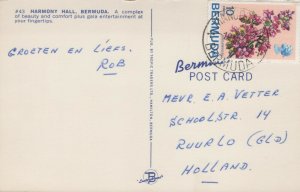 #43 HARMONY HALL, BERMUDA. A complex
of beauty and comfort plus gala entertainment at
your fingertips.
GROETEN EN LIEFS.
ROB
BERMUDA
10
BERMUDA
Bermuda
POST CARD
MEVR. E.A. VETTER
SCHOOLSTR. 14
RUURLO (GLD)
HOLLAND.